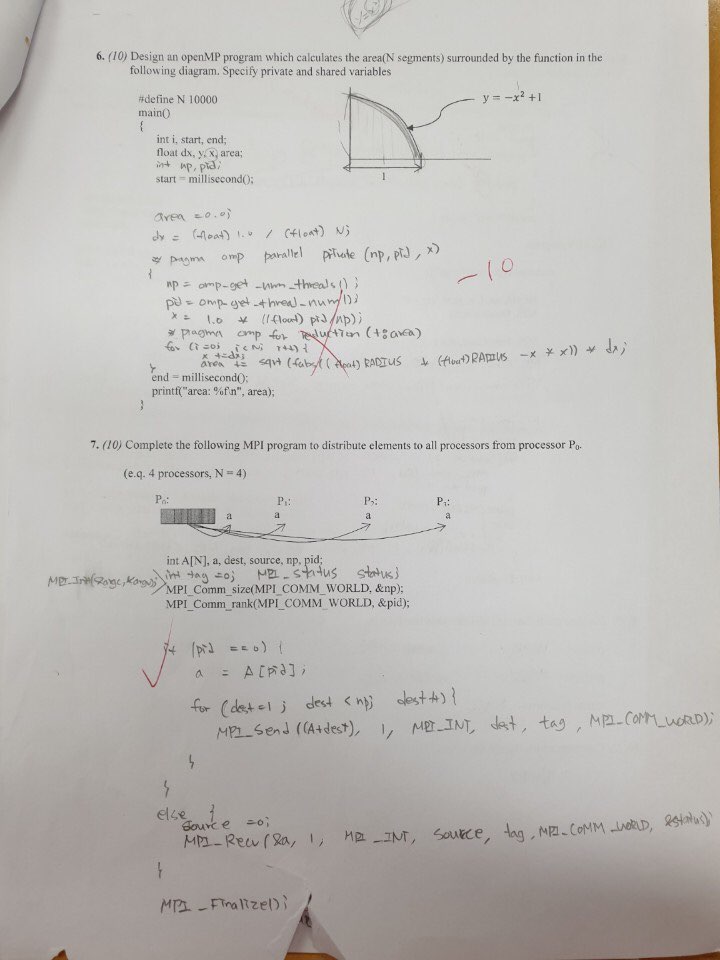 6. (10) Design an openMP program which calculates the area(N segments) surrounded by the function in the
following diagram. Specify private and shared variables
#define N 10000
y = -x² +1
main()
{
int i, start, end;
float dx, y, x, area;
int np, pid;
start = millisecond();
1
area = 0.0;
dx = (float) 1.0 / (float) N;
# pragma omp parallel private (np, pid, x)
-10
{
np = omp-get-num-threads();
pid = omp-get-thread-num();
x = 1.0 * ((float) pid/np);
# pragma omp for reduction (+:area)
for (i=0; i<N; i++) {
x += dx;
area += sqrt (fabs(((float) RADIUS * (float)RADIUS - x * x)) * dx;
}
end = millisecond();
printf("area: %f\n", area);
}
7. (10) Complete the following MPI program to distribute elements to all processors from processor P₀.
(e.q. 4 processors, N = 4)
P₀: P₁: P₂: P₃:
a a a a
int A[N], a, dest, source, np, pid;
int tag =0; MPI_Status status;
MPI_Init(&argc, &argv);
MPI_Comm_size(MPI_COMM_WORLD, &np);
MPI_Comm_rank(MPI_COMM_WORLD, &pid);
if (pid == 0) {
a = A[pid];
for (dest=1; dest < np; dest++) {
MPI_Send((A+dest), 1, MPI_INT, dest, tag, MPI_COMM_WORLD);
}
}
else {
source =0;
MPI_Recv(&a, 1, MPI_INT, source, tag, MPI_COMM_WORLD, &status);
}
MPI_Finalize();